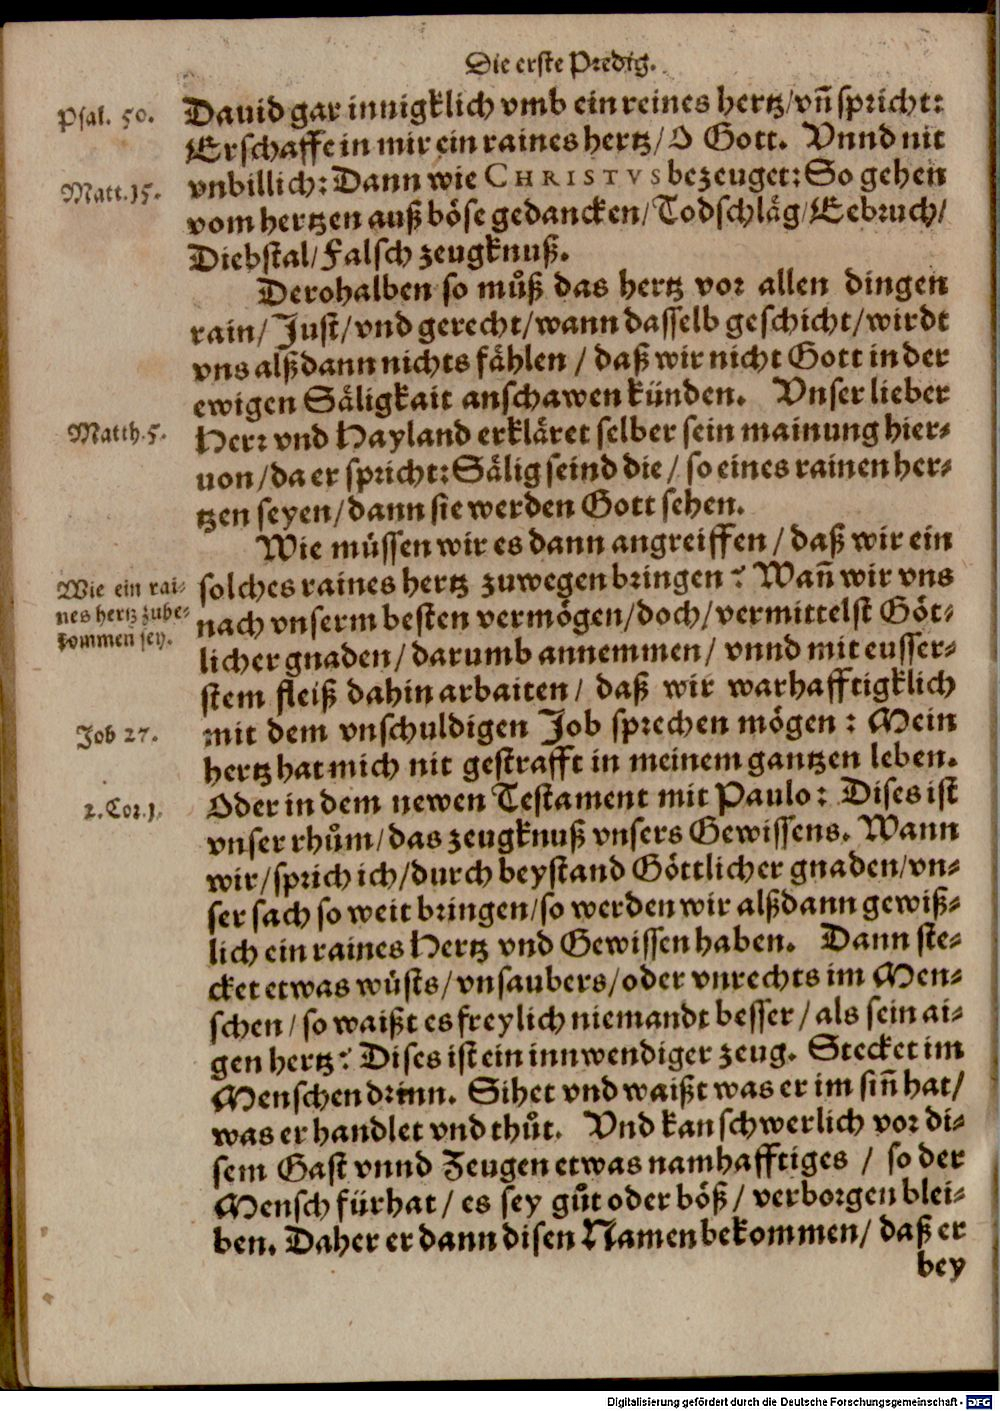 Die erste Predig.
Psal. 50. Dauid gar innigklich vmb ein reines hertz/vñ spricht:
Erschaffe in mir ein raines hertz/O Gott. Vnnd nit
Matt.15. vnbillich: Dann wie CHRISTVS bezeuget: So gehen
vom hertzen auß böse gedancken/Todschläg/Eebruch/
Diebstal/Falsch zeugknuß.
Derohalben so můß das hertz vor allen dingen
rain/Just/vnd gerecht/wann dasselb geschicht/wirdt
vns alßdann nichts fählen / daß wir nicht Gott in der
ewigen Säligkait anschawen künden. Vnser lieber
Matth.5. Herr vnd Hayland erkläret selber sein mainung hier-
uon/da er spricht: Sälig seind die / so eines rainen her-
tzen seyen/dann sie werden Gott sehen.
Wie müssen wir es dann angreiffen / daß wir ein
Wie ein rai-
nes hertz zube-
kommen sey.
solches raines hertz zuwegen bringen? Wañ wir vns
nach vnserm besten vermögen/doch/vermittelst Göt-
licher gnaden/darumb annemmen/ vnnd mit eusser-
stem fleiß dahin arbaiten/ daß wir warhafftigklich
Job 27. mit dem vnschuldigen Job sprechen mögen: Mein
hertz hat mich nit gestrafft in meinem gantzen leben.
2.Cor.1. Oder in dem newen Testament mit Paulo: Dises ist
vnser rhům/das zeugknuß vnsers Gewissens. Wann
wir/sprich ich/durch beystand Göttlicher gnaden/vn-
ser sach so weit bringen/so werden wir alßdann gewiß-
lich ein raines Hertz vnd Gewissen haben. Dann ste-
cket etwas wüsts/vnsaubers/oder vnrechts im Men-
schen/so waißt es freylich niemandt besser/als sein ai-
gen hertz? Dises ist ein innwendiger zeug. Stecket im
Menschen drinn. Sihet vnd waißt was er im siñ hat/
was er handlet vnd thůt. Vnd kan schwerlich vor di-
sem Gast vnnd Zeugen etwas namhafftiges / so der
Mensch fürhat/es sey gůt oder böß/verborgen blei-
ben. Daher er dann disen Namen bekommen/daß er
bey
Digitalisierung gefördert durch die Deutsche Forschungsgemeinschaft - DFG